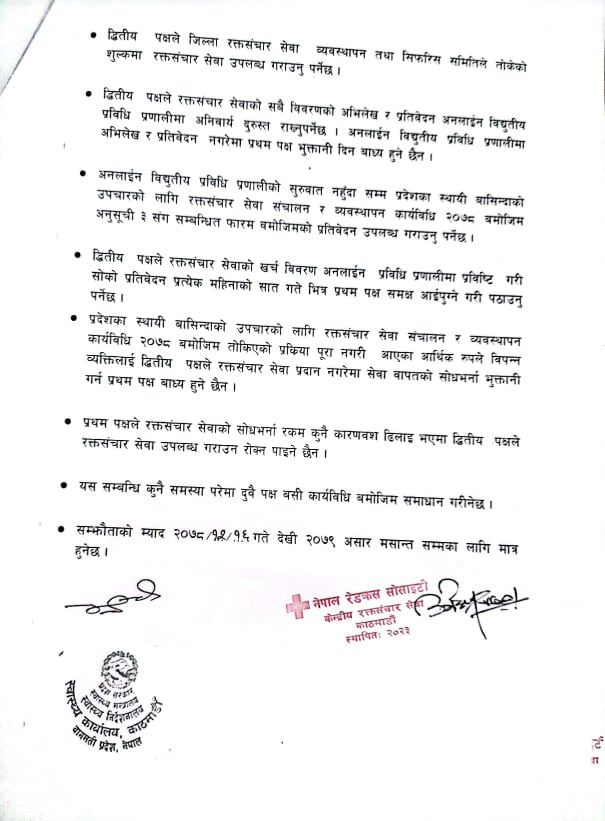 • द्वितीय पक्षले जिल्ला रक्तसंचार सेवा व्यवस्थापन तथा सिफरिस समितिले तोकेको
शुल्कमा रक्तसंचार सेवा उपलब्ध गराउनु पर्नेछ ।
• द्वितीय पक्षले रक्तसंचार सेवाको सबै विवरणको अभिलेख र प्रतिवेदन अनलाईन विद्युतीय
प्रविधि प्रणालीमा अनिवार्य दुरुस्त राख्नुपर्नेछ । अनलाईन विद्युतीय प्रविधि प्रणालीमा
अभिलेख र प्रतिवेदन नगरेमा प्रथम पक्ष भुक्तानी दिन बाध्य हुने छैन ।
• अनलाईन विद्युतीय प्रविधि प्रणालीको सुरुवात नहुँदा सम्म प्रदेशका स्थायी बासिन्दाको
उपचारको लागि रक्तसंचार सेवा संचालन र व्यवस्थापन कार्यविधि २०७८ बमोजिम
अनुसूची ३ संग सम्बन्धित फारम बमोजिमको प्रतिवेदन उपलब्ध गराउनु पर्नेछ ।
• द्वितीय पक्षले रक्तसंचार सेवाको खर्च विवरण अनलाईन प्रविधि प्रणालीमा प्रविष्टि गरी
सोको प्रतिवेदन प्रत्येक महिनाको सात गते भित्र प्रथम पक्ष समक्ष आईपुग्ने गरी पठाउनु
पर्नेछ ।
• प्रदेशका स्थायी बासिन्दाको उपचारको लागि रक्तसंचार सेवा संचालन र व्यवस्थापन
कार्यविधि २०७८ बमोजिम तोकिएको प्रकिया पूरा नगरी आएका आर्थिक रुपले विपन्न
व्यक्तिलाई द्वितीय पक्षले रक्तसंचार सेवा प्रदान नगरेमा सेवा वापतको सोधभर्ना भुक्तानी
गर्न प्रथम पक्ष बाध्य हुने छैन ।
• प्रथम पक्षले रक्तसंचार सेवाको सोधभर्ना रकम कुनै कारणवश ढिलाइ भएमा द्वितीय पक्षले
रक्तसंचार सेवा उपलब्ध गराउन रोक्न पाइने छैन ।
• यस सम्बन्धि कुनै समस्या परेमा दुवै पक्ष बसी कार्यविधि बमोजिम समाधान गरीनेछ ।
• सम्झौताको म्याद २०७८/१२/१६ गते देखी २०७९ असार मसान्त सम्मका लागि मात्र
हुनेछ ।
नेपाल रेडक्रस सोसाइटी
केन्द्रीय रक्तसंचार सेवा
काठमाडौं
स्थापितः २०२३
प्रदेश सरकार
स्वास्थ्य मन्त्रालय
स्वास्थ्य निर्देशनालय
स्वास्थ्य कार्यालय, काठमाडौं
बागमती प्रदेश, नेपाल